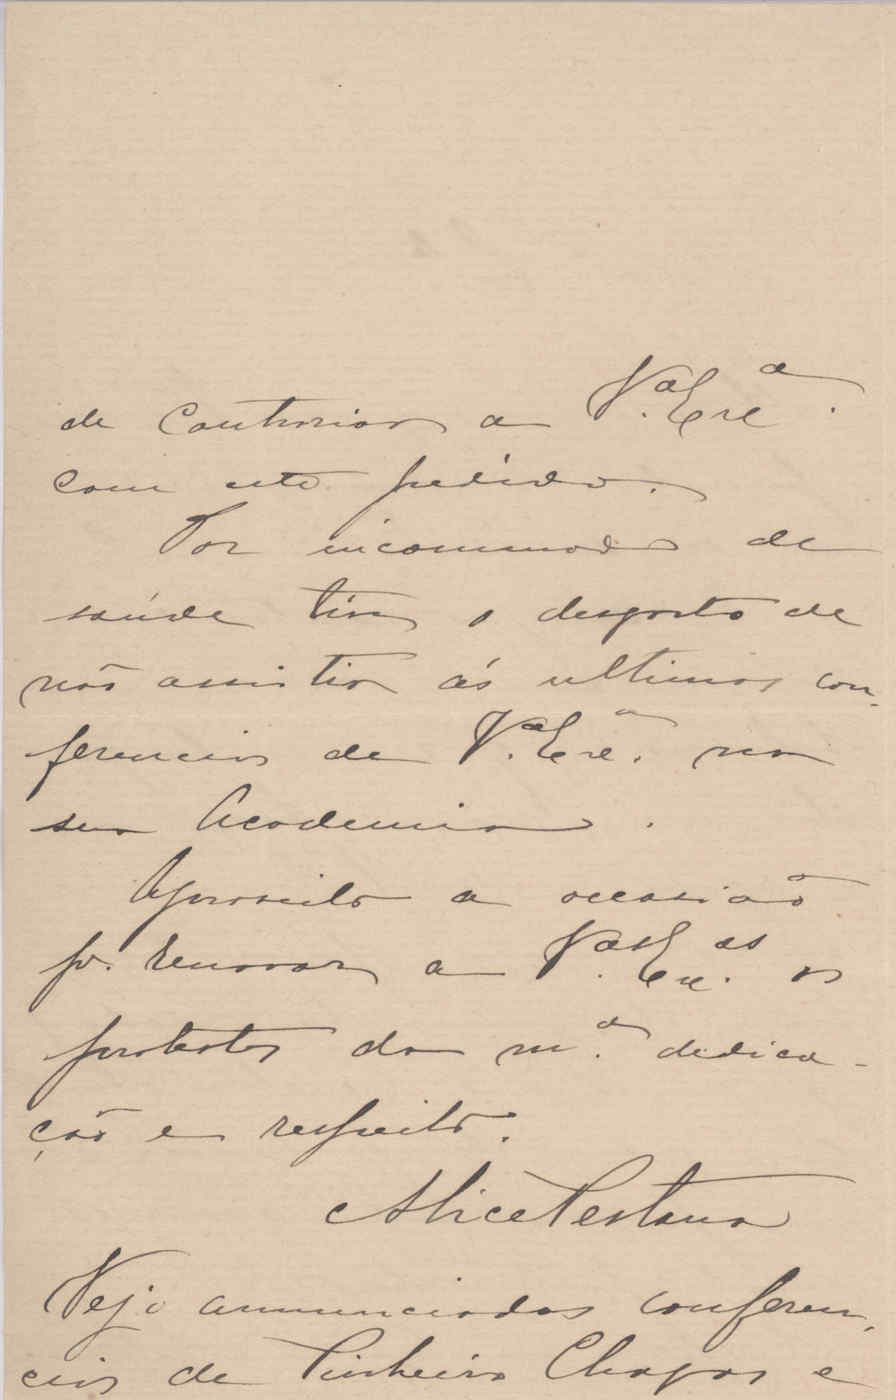 de contrariar a V.ª Ex.cª
com este pedido.
Por incommodo de
saúde tive o desgosto de
não assistir ás ultimas con-
ferencias de V.ª Ex.cª na
sua Academia.
Aproveito a occasião
p.ª renovar a V.as Ex.cas os
protestos da m.ª dedica-
ção e respeito.
Alice Pestana
Vejo annunciadas conferen-
cias de Pinheiro Chagas e